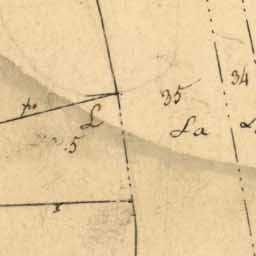 34
35
po
L
La
5
x